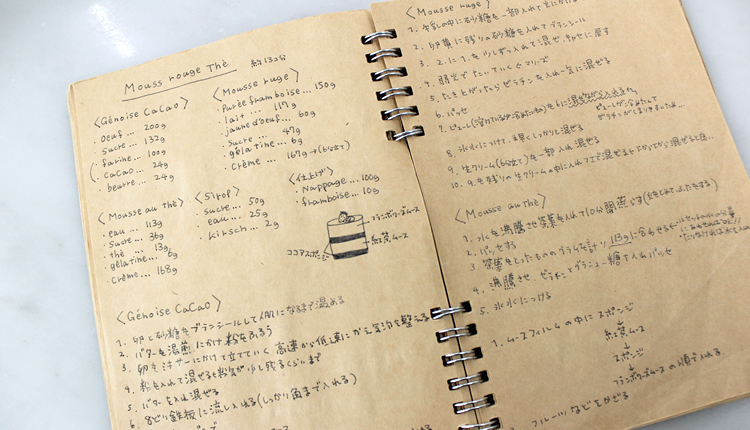 Mouss rouge Thé 約132分
〈Génoise Cacao〉
・Oeuf... 200g
・Sucre... 132g
・farine... 100g
・Cacao... 24g
・beurre... 24g
〈Mousse ruge〉
・Purée framboise... 150g
・lait... 117g
・jaune d'oeuf... 60g
・Sucre... 47g
・gélatine... 6g
・Crème... 167g→(6分立て)
〈Mousse au thé〉
・eau... 113g
・sucre... 36g
・thé... 13g
・gélatine... 6g
・Crème... 168g
〈Sirop〉
・sucre... 50g
・eau... 25g
・kirsch... 2g
〈仕上げ〉
・Nappage... 100g
・framboise... 10g
フランボワーズムース
紅茶ムース
ココアスポンジ
〈Génoise Cacao〉
1. 卵と砂糖をブランシールして人肌になるまで温める
2. バターを湯煎にかけ粉をふるう
3. 卵をミキサーにかけて立てていく 高速から低速にかえ気泡を整える
4. 粉を入れて混ぜる粉気が少し残るくらいまで
5. バターを入れ混ぜる
6. 8どり鉄板に流し入れる(しっかり角まで入れる)
〈Mousse ruge〉
1. 牛乳の中に砂糖を一部入れて火にかける
2. 卵黄に残りの砂糖を入れてブランシール
3. 2.に1.を少しずつ入れて混ぜ、わせに戻す
4. 弱火でたいていくナリーズ
5. たき上がったらゼラチンを入れ一気に混ぜる
6. パッセ
7. ピューレ(溶けているが冷めたもの)を6.に混ぜながら入れる
ピューレが冷めたくて
ゼラチンがかたまりますため
8. 氷水につけて、軽くしっかり混ぜる
9. 生クリーム(6分立て)を一部入れ混ぜる
10. 9.を残りの生クリームの中に入れて
〈Mousse au thé〉
1. 水を沸騰させ茶葉を入れて10分間蒸らす
2. パッセする
3. 茶葉をとったもののグラムを計り 113gに合わせる
4. 沸騰させ、ゼラチンとグラニュー糖を入れパッセ
5. 氷水につける
1. ムースフィルムの中に スポンジ
↓
紅茶ムース
↓
スポンジ
↓
フランボワーズムース の順で入れる
フルーツなどをかざる